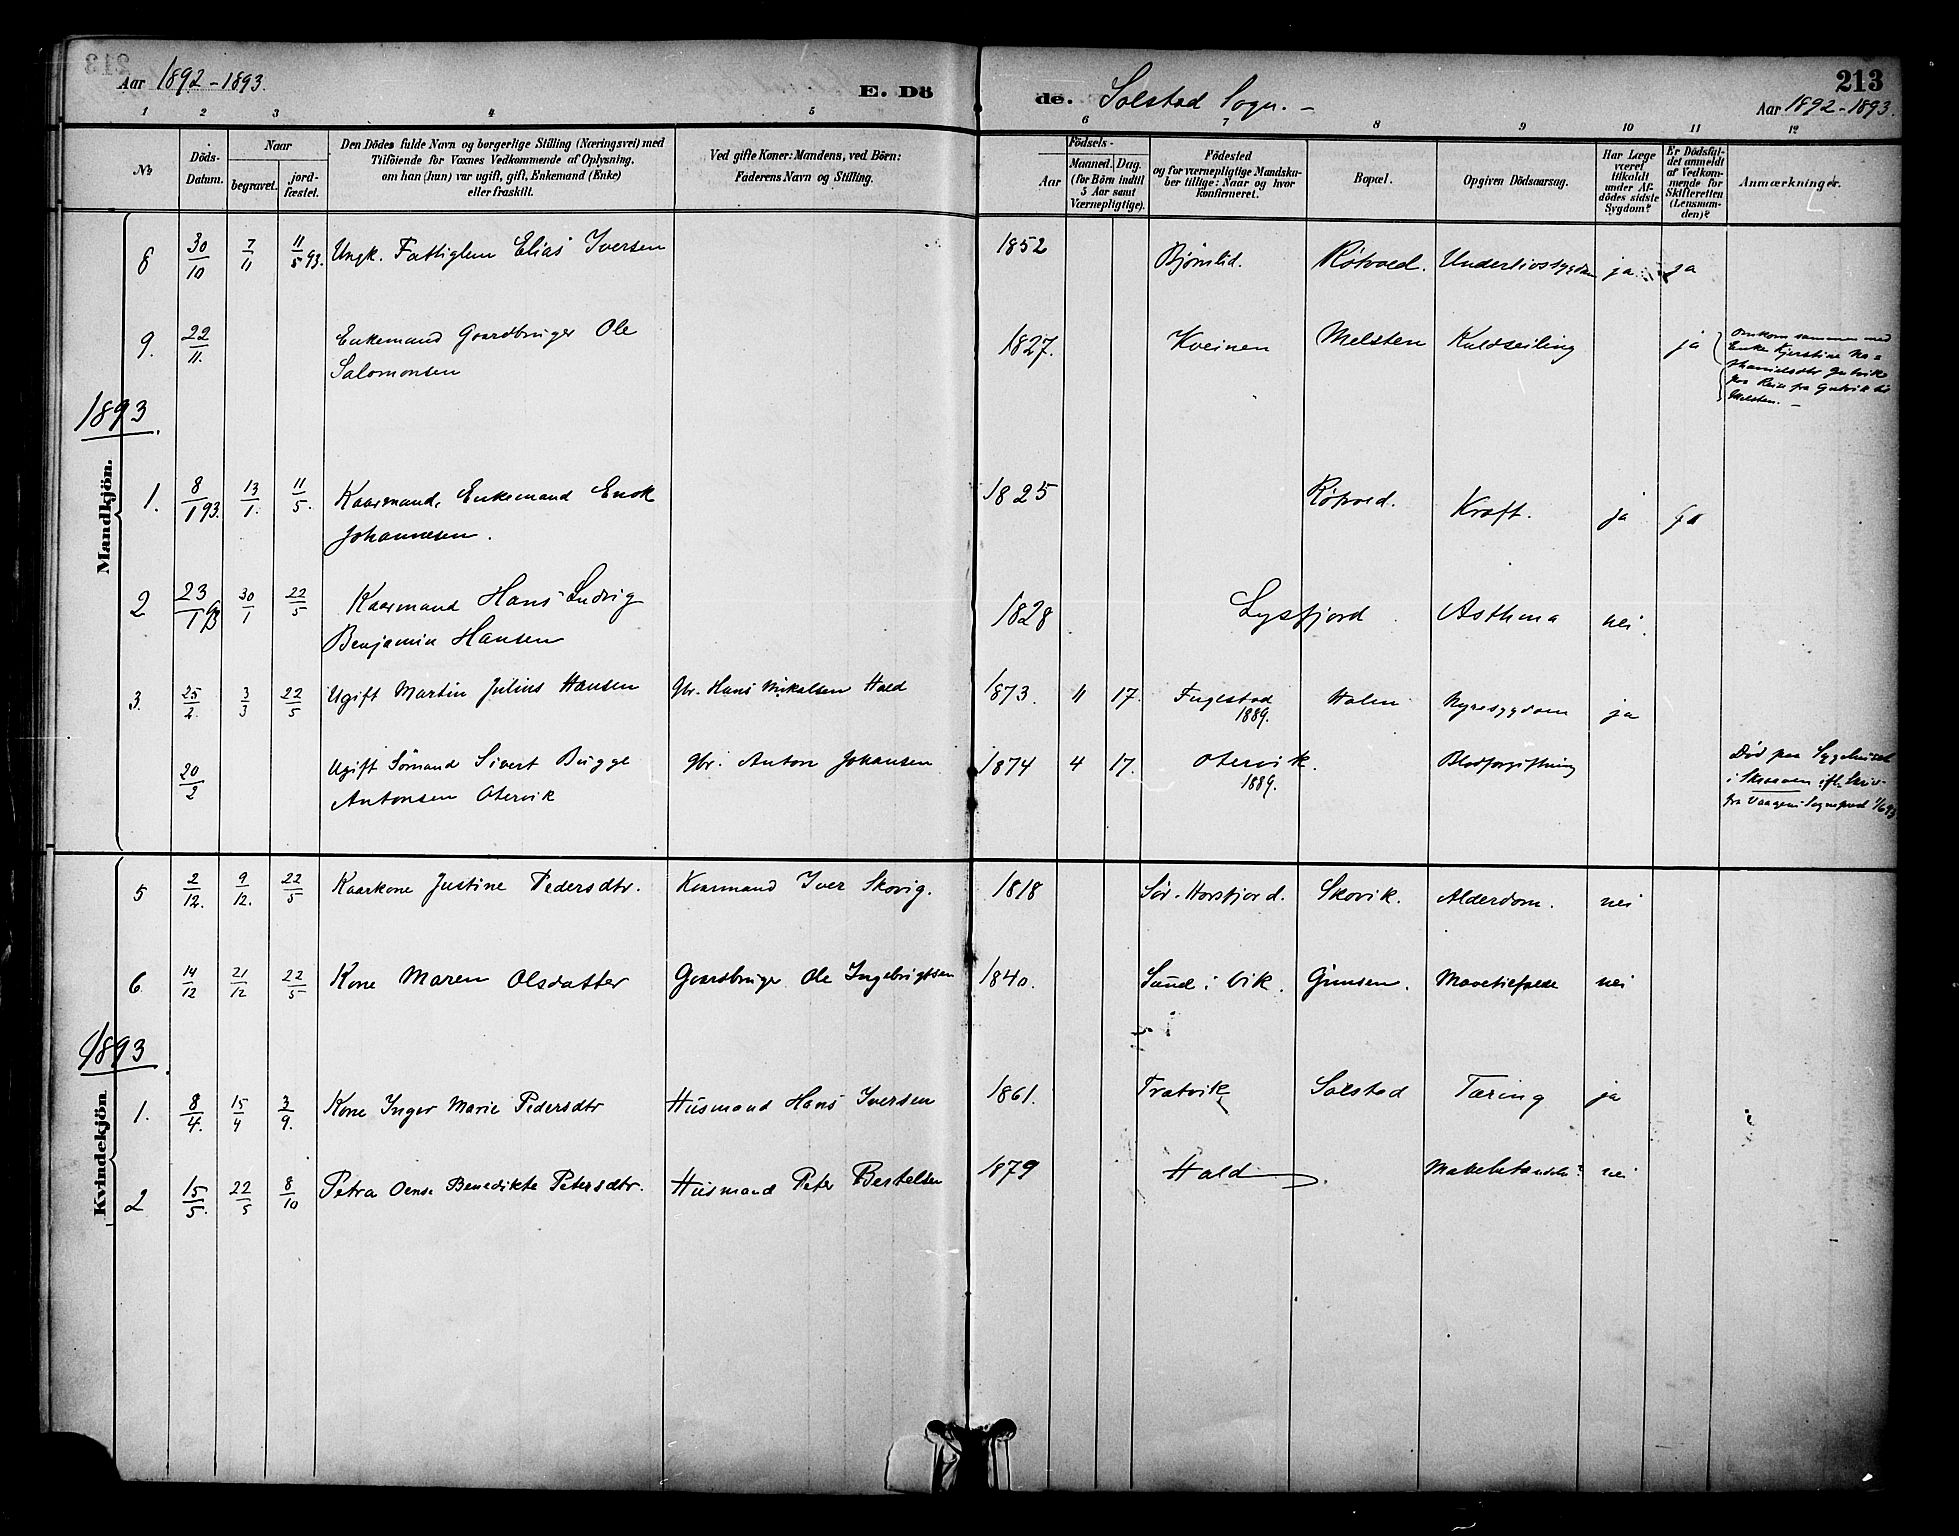 213
Aar 1892-1893.
E. Dö
de. Solstad Sogn. -
Aar 1892-1893.
1 2 3 4 5 6 7 8 9 10 11 12
No
Döds-Datum.
Naar
begravet. jord-fæstet.
Den Dödes fulde Navn og borgerlige Stilling (Næringsvei) med
Tilföiende for Voxnes Vedkommende af Oplysning,
om han (hun) var ugift, gift, Enkemand (Enke)
eller fraskilt.
Ved gifte Koner: Mandens, ved Börn:
Faderens Navn og Stilling.
Födsels-
Aar
Maaned. Dag.
(for Börn indtil
5 Aar samt
Værnepligtige).
Födested
og for værnepligtige Mandska-
ber tillige: Naar og hvor
konfirmeret.
Bopæl.
Opgiven Dödsaarsag.
Har Læge
været
tilkaldt
under Af-
dödes sidste
Sygdom?
Er Dödsfal-
det anmeldt
af Vedkom-
mende for
Skifteretten
(Lensman-
den)?
Anmærkninger.
8 30/10 7/11 11/5 93. Ungk. Fattiglem Elias Iversen 1852 Bjørnlid. Røtvold. Underlivssygdom ja ja
9. 22/11. Enkemand Gaardbruger Ole
Salomonsen 1827. Kveinen Melsten Kuldseiling ja
Omkom sammen med
Enke Kjerstine
paa Reise fra Gutvik til
Melsten. -
1893.
Mandkjön.
1. 8/1 93. 13/1. 11/5. Kaarmand, Enkemand Enok
Johannesen. 1825 Røtvold. Kraft. ja ja
2 23/1 93 30/1 22/5 Kaarmand Hans Ludvig
Benjamin Hansen 1828 Lysfjord Asthma nei.
3. 25/2. 3/3 22/5 Ugift Martin Julius Hansen Gbr. Hans Mikalsen Hald 1873. 11 17. Fuglstad
1889. Holm Nyresygdom ja
20/2 Ugift Sømand Sivert Bugge
Antonsen Otervik Gbr. Anton Johansen 1874 4 17. Otervik.
1889. Blodforgiftning
Død paa Sygehuset
i Skraaven ifl. Skriv.
fra Vaagens Sognepræst
5 2/12. 9/12. 22/5 Kaarkone Justine Pedersdtr. Kaarmand Iver Skovig. 1818 Sør-Horsfjord. Skovik. Alderdom. nei
6 14/12 21/12 22/5 Kone Maren Olsdatter Gaardbruger Ole Ingebrigtsen 1840. Sund i Vik. Gimsen. Mavetilfælde nei
1893.
Kvindekjön
1. 8/4. 15/4 3/9. Kone Inger Marie Pedersdtr Husmand Hans Iversen 1861. Tratvik Solstad Tæring ja
2 15/5. 22/5 8/10 Petra Oense Benedikte Petersdtr. Husmand Peter Bertelsen 1879 Hald nei